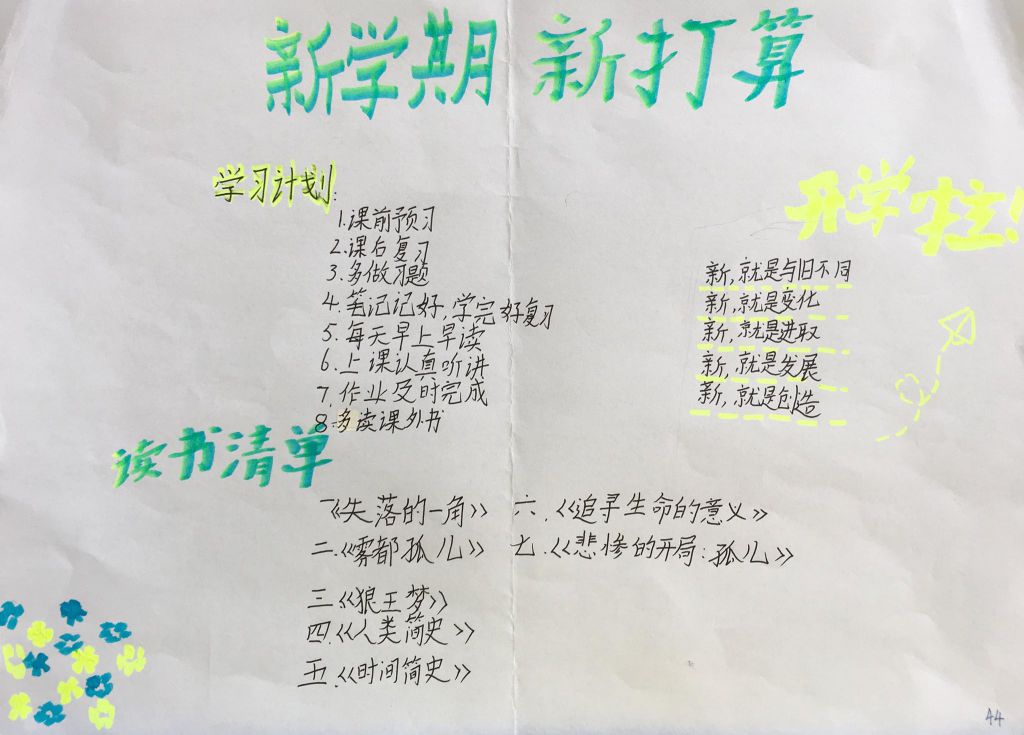 新学期 新打算
学习计划:
1.课前预习
2.课后复习
3.多做习题
4.笔记记好,学完好复习
5.每天早上早读
6.上课认真听讲
7.作业及时完成
8.多读课外书
开学啦!
新,就是与旧不同
新,就是变化
新,就是进取
新,就是发展
新,就是创造
读书清单
一《失落的一角》
二.《雾都孤儿》
三《狼王梦》
四.《人类简史》
五.《时间简史》
六.《追寻生命的意义》
七.《悲惨的开局:孤儿》
44